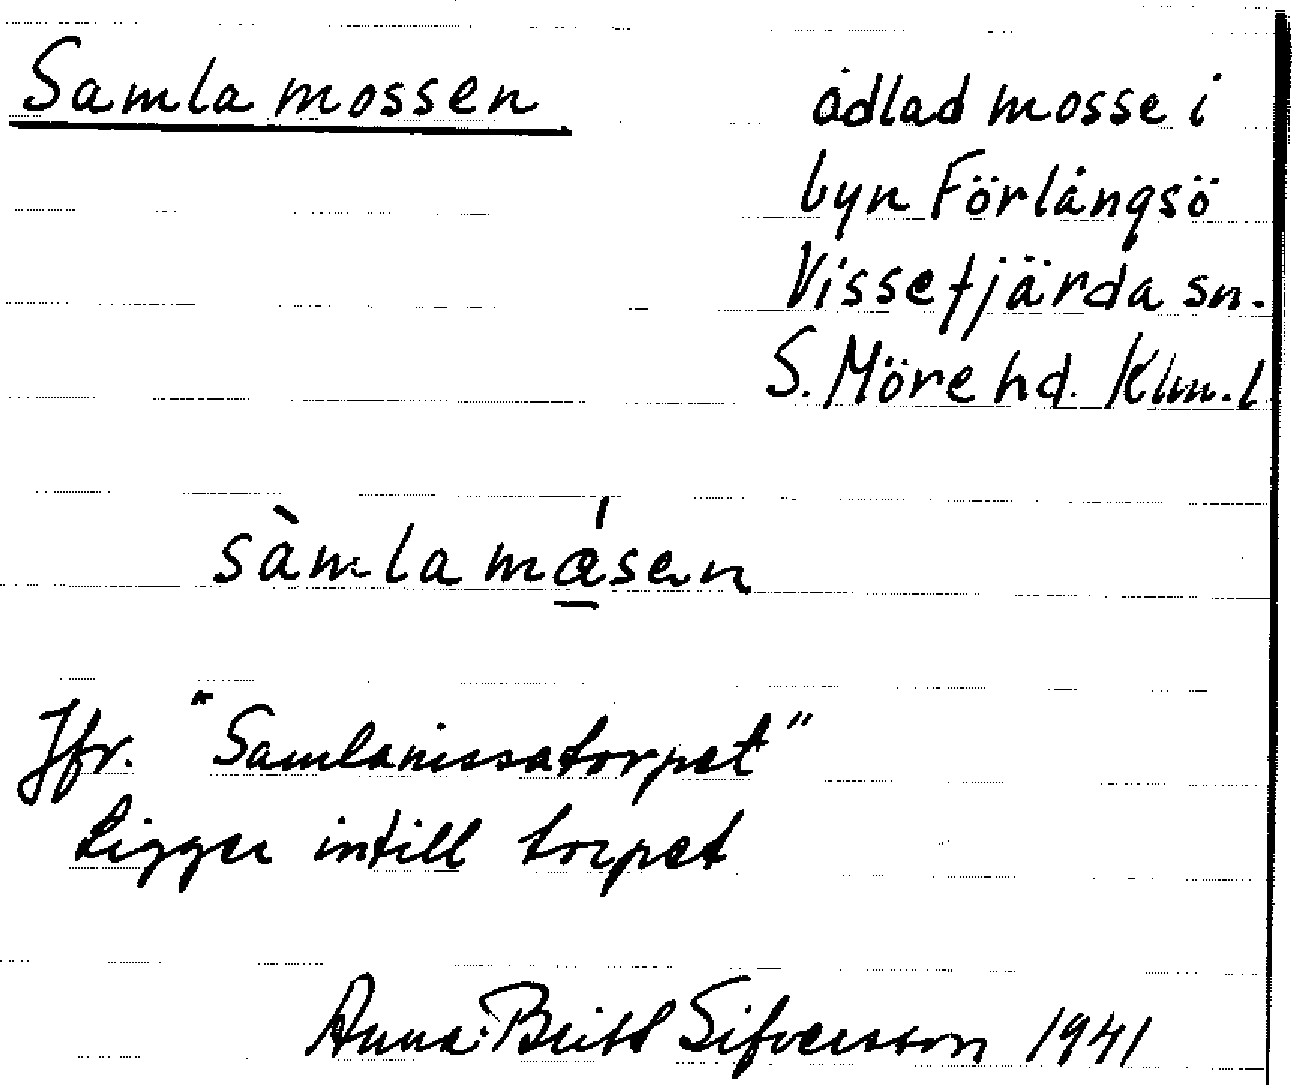 Samla mossen
odlad mosse i
byn Förlångsö
Vissefjärda sn.
S. Möre hd. Klm. l
sàmla má̲sen
Jfr. "Samlanissatorpet"
Ligger intill torpet
Anna-Britt Sifversson 1941